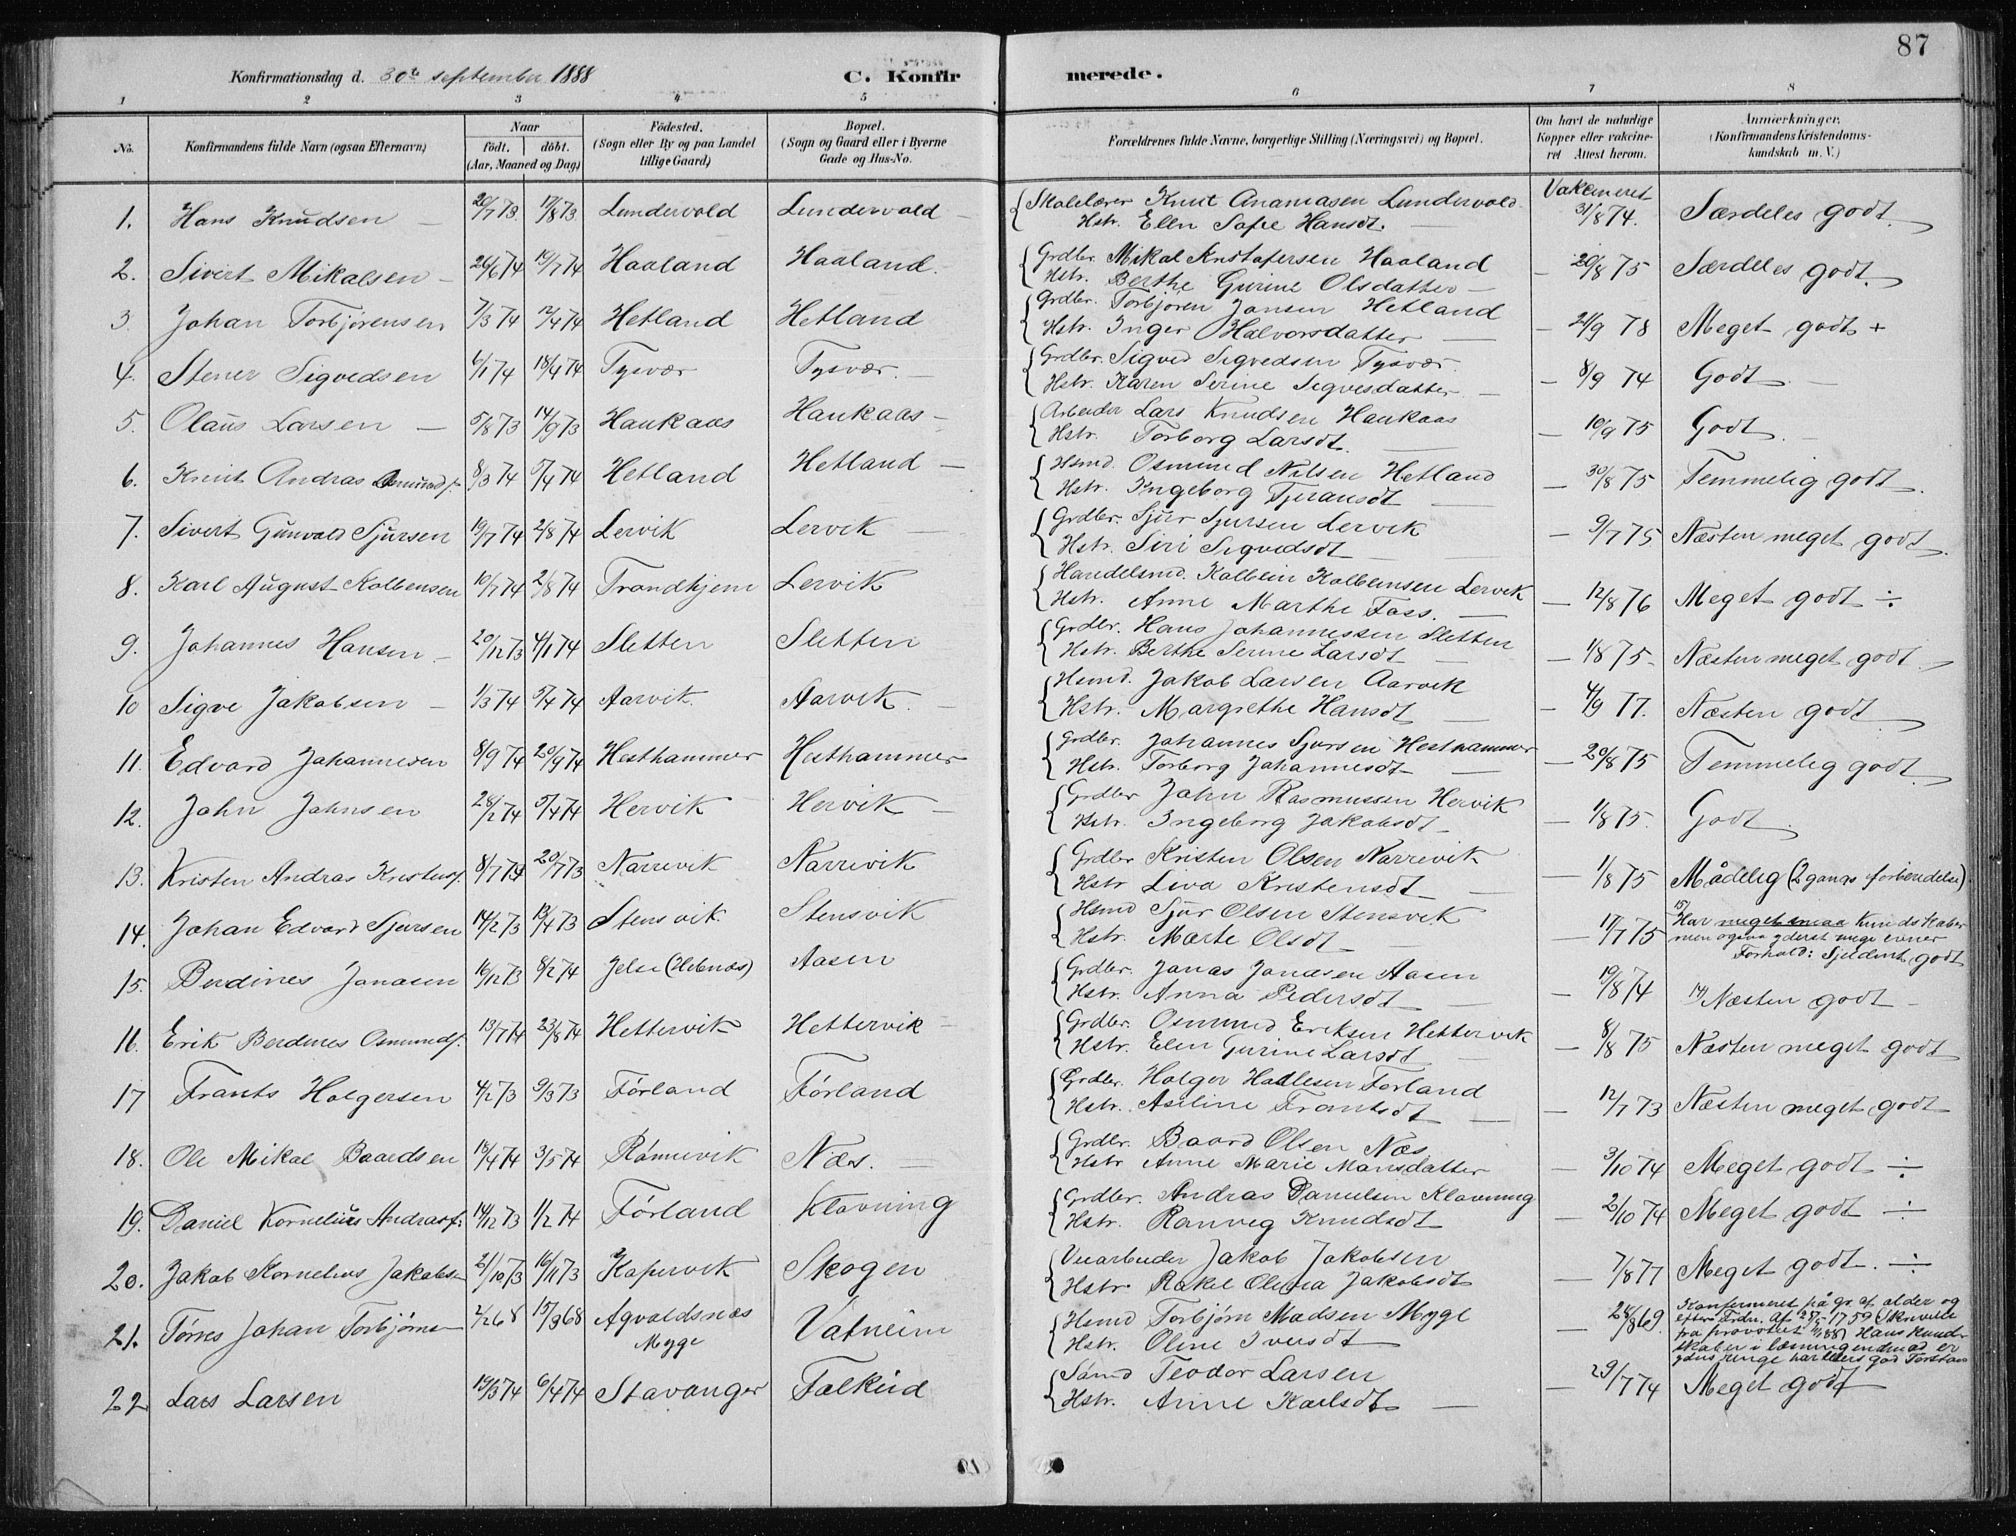 87
Konfirmationsdag d. 30te september 1888 C. Konfirmerede.
1 2 3 4 5 6 7 8
No. Konfirmandens fulde Navn (ogsaa Efternavn) Naar födt. döbt. (Aar, Maaned og Dag) Födested. (Sogn eller By og paa Landet tillige Gaard) Bopæl. (Sogn og Gaard eller i Byerne Gade og Hus-No. Forældrenes fulde Navne, borgerlige Stilling (Næringsvei) og Bopæl. Om havt de naturlige Kopper eller vakcineret Attest herom. Anmærkninger. (Konfirmandens Kristendomskundskab m. V.)
1. Hans Knudsen 20/7 73 17/8 73 Lundervold Lundervold Skolelærer Knut Ananiasen Lundervold Vakcineret 31/8 74. Særdeles godt.
Hstr. Ellen Sofie Hansdt.
2. Sivert Mikalsen 26/6 74 19/7 74 Haaland Haaland. Grdbr. Mikal Kristofersen Haaland 20/8 75 Særdeles godt.
Hstr. Berthe Gurine Olsdatter
3. Johan Torbjörensen 7/3 74 12/4 74 Hetland Hetland Grdbr. Torbjoren Jansen Hetland 21/9 78 Meget godt +
Hstr. Inger Halvorsdatter
4. Stener Sigvedsen 6/1 74 18/4 74 Tysvær Tysvær. Grdbr. Sigved Sigvedsen Tysvær. 8/9 74 Godt
Hstr. Karen Serine Sigvesdatter
5. Olaus Larsen 5/8 73 14/9 73 Haukaas Haukaas Arbeider Lars Knudsen Haukaas 10/9 75 Godt.
Hstr. Torborg Larsdt.
6. Knut Andras Osmunds. 8/3 74 5/4 74 Hetland Hetland Hsmd. Osmund Nilsen Hetland 30/8 75 Temmelig godt.
Hstr. Ingeborg Tjeransdt
7. Sivert Gunvald Sjursen 19/7 74 2/8 74 Lervik Lervik Grdbr. Sjur Sjursen Lervik 9/7 75 Næsten meget godt.
Hstr. Siri Sigvedsdt
8. Karl August Kolbensen 10/7 74 2/8 74 Trondhjem Lervik Handelsmd. Kolbein Kolbeinsen Lervik 12/8 76 Meget godt ÷
Hstr. Anne Marthe Foss.
9. Johannes Hansen 20/12 73 4/1 74 Sletten Sletten Grdbr. Hans Johannessen Sletten 1/8 75 Næsten meget godt
Hstr. Berthe Serine Larsdt
10 Sigve Jakobsen 1/3 74 5/4 74 Aarvik. Aarvik. Hsmd. Jakob Larsen Aarvik 4/9 77. Næsten godt
Hstr. Margrethe Hansdt
11. Edvard Johannesen 8/9 74 20/9 74 Hesthammer Hesthammer Grdbr. Johannes Sjursen Hesthammer 20/8 75 Temmelig godt
Hstr. Torborg Johannesdt
12. John Johnsen 28/2 74 5/4 74 Hervik Hervik Grdbr John Rasmussen Hervik 1/8 75. Godt
Hstr. Ingeborg Jakobsdt
13. Kristen Andras Kristens. 8/7 74 20/7 73 Narrevik Narrevik Grdbr Kristen Olsen Narrevik 1/8 75 Mådelig (2 gangs forberedelse)
Hstr Liva Kristensdt
14. Johan Edvard Sjursen 14/2 73 13/4 73 Stensvik Stensvik Hsmd Sjur Olsen Stensvik 17/7 75 15/ Har meget smaa kundskaber
Hstr. Marte Olsdt men ogsaa yderst ringe evner
Forhold: Sjeldent godt
15. Berdines Jonasen 16/12 73 8/2 74 Jelse (Hebnæs) Aasen Grdbr. Jonas Jonasen Aasen 19/8 74 14/ Næsten godt
Hstr. Anna Pedersdt
16. Erik Berdines Osmunds. 13/7 74 23/8 74 Hettervik Hettervik Grdbr. Osmund Eriksen Hettervik 8/8 75 Næsten meget godt
Hstr. Elen Gurine Larsdt
17 Frants Holgersen 4/2 73 9/3 73 Førland Førland Grdbr. Holger Hallesen Førland 12/7 73 Næsten meget godt
Hstr. Aseline Frantsdt
18. Ole Mikal Baardsen 15/4 74 3/5 74 Rønnevik Næs. Grdbr. Baard Olsen Næs 3/10 74 Meget godt ÷
Hstr Anne Marie Monsdatter
19. Daniel Kornelius Andrass. 14/12 73 1/2 74 Førland Klovning Grdbr. Andras Danielsen Klovning 2/10 74 Meget godt ÷
Hstr. Ranveg Knudsdt
20. Jakob Kornelius Jakobsen 21/10 73 16/11 73 Kopervik Skogen Veiarbeider Jakob Jakobsen 7/8 77 Meget godt. ÷
Hstr. Rakel Olena Jakobsdt
21. Tørres Johan Torbjørns 2/2 68 15/3 68 Agvaldsnæs Vatneim Hsmd Torbjørn Madsen Myge 28/8 69. Konfirmeret på gr. af alder og
Myge Hstr. Oline Iversdt efter Frdn. af 25/5 1759 Skrivelse
fra provstiet Hans kundskaber i læsning
22 Lars Larsen 19/3 74 6/4 74 Stavanger Falkeid Sømd Teodor Larsen 29/7 74 Meget godt
Hstr. Anne Karlsdt